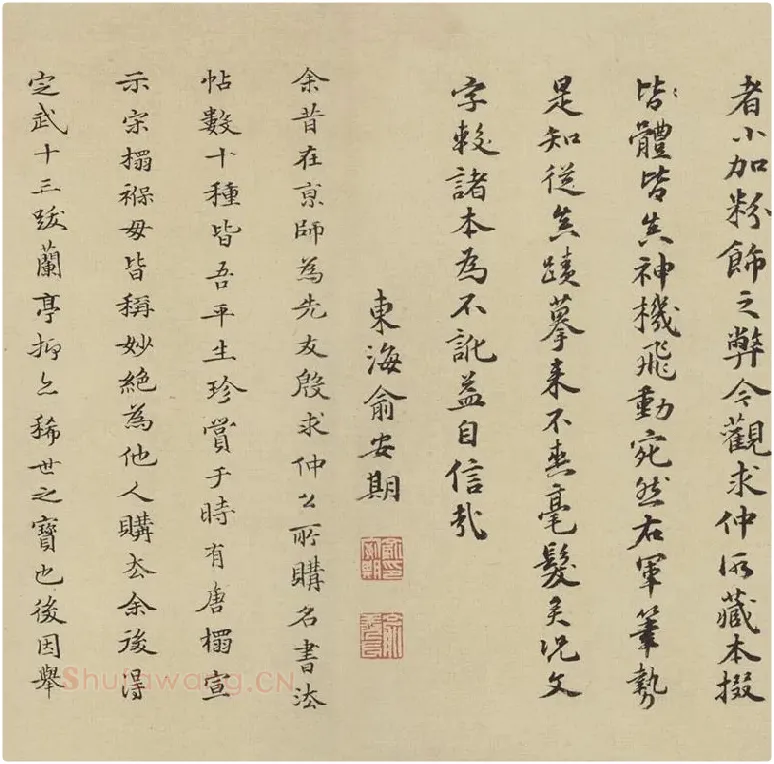 者小加粉飾之弊今觀求仲所藏本掇
皆體皆真神機飛動宛然右軍筆勢
是知從真蹟摹来不失毫髮矣况文
字較諸本為不訛益自信哉
東海俞安期
余昔在京師為先友殷求仲公所購名書法
帖數十種皆吾平生珍賞于時有唐榻宣
示宋榻褓母皆稱妙絶為他人購去余後得
定武十三跋蘭亭抑亦稀世之寶也後因舉
Shufawang.CN